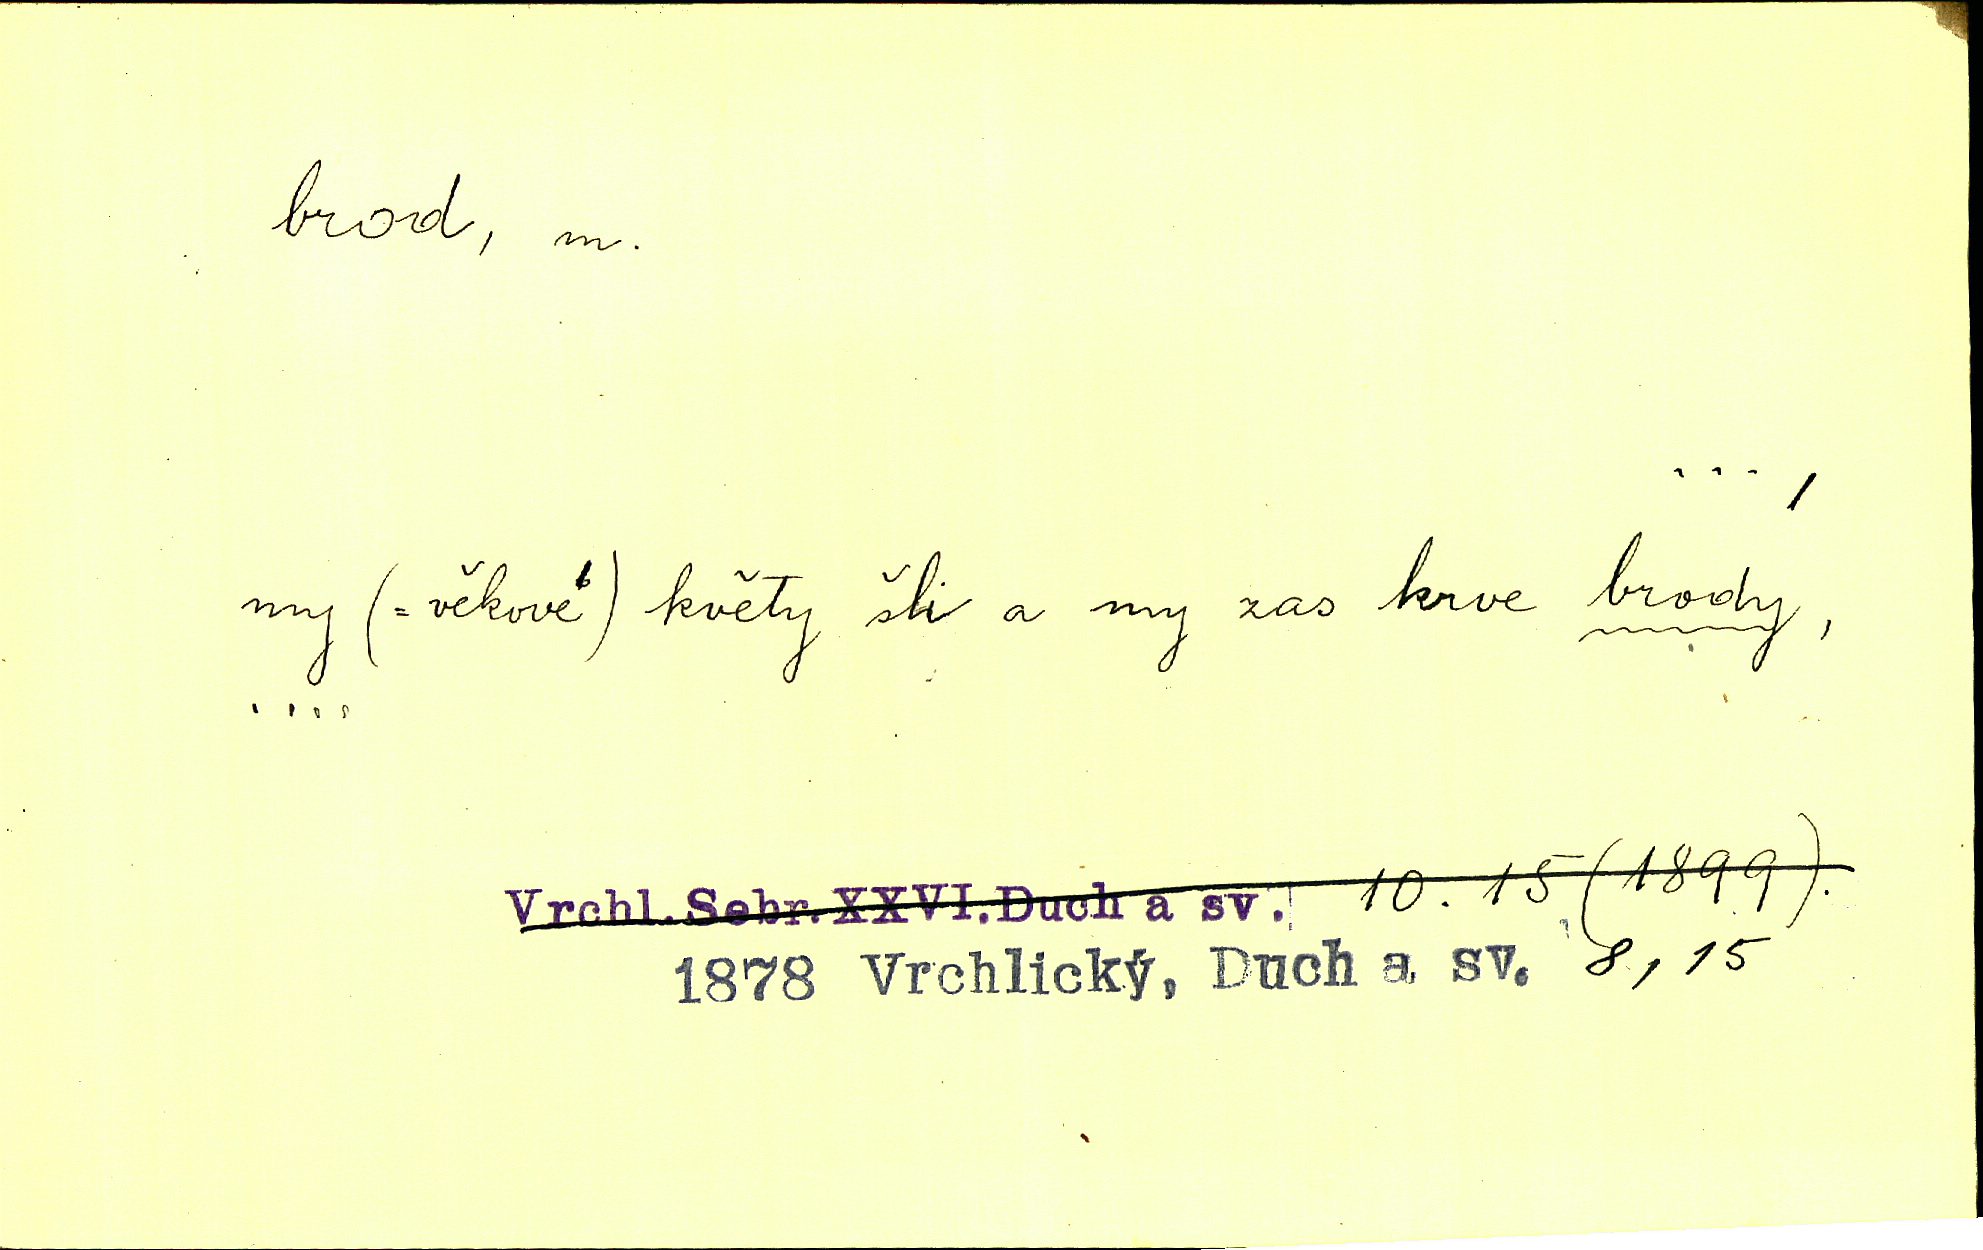 brod, m.
... ,
my (= věkové) květy šli a my zas krve brody,
....
Vrchl. Sebr. XXVI. Duch a sv. 10. 15 (1899).
1878 Vrchlický, Duch a sv. 8, 15